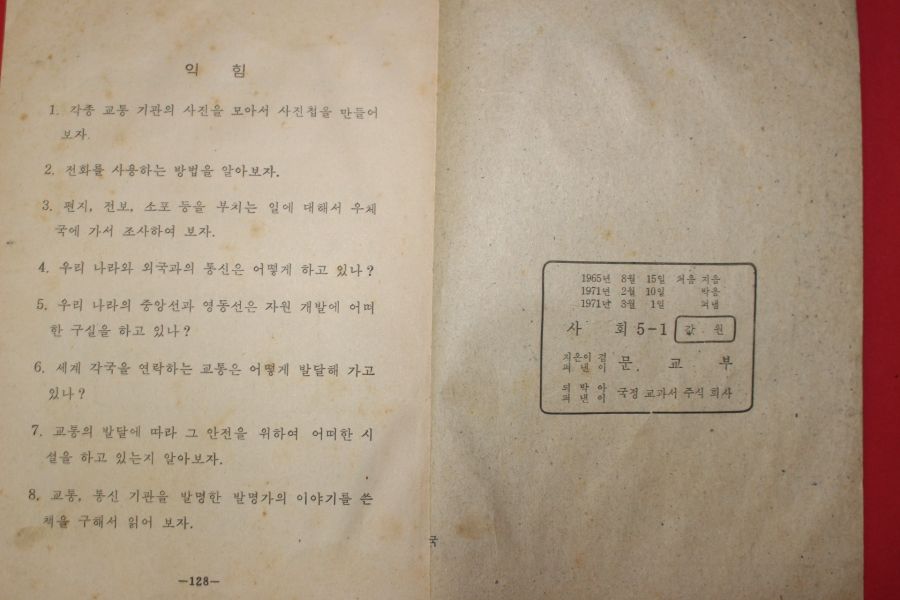 익 힘
1. 각종 교통 기관의 사진을 모아서 사진첩을 만들어
보자.
2. 전화를 사용하는 방법을 알아보자.
3. 편지, 전보, 소포 등을 부치는 일에 대해서 우체
국에 가서 조사하여 보자.
4. 우리 나라와 외국과의 통신은 어떻게 하고 있나?
5. 우리 나라의 중앙선과 영동선은 자원 개발에 어떠
한 구실을 하고 있나?
6. 세계 각국을 연락하는 교통은 어떻게 발달해 가고
있나?
7. 교통의 발달에 따라 그 안전을 위하여 어떠한 시
설을 하고 있는지 알아보자.
8. 교통, 통신 기관을 발명한 발명가의 이야기를 쓴
책을 구해서 읽어 보자.
—128—
국
1965년 8월 15일 처음 지음
1971년 2월 10일 박음
1971년 3월 1일 펴냄
사 회 5-1 값 원
지은이 겸
펴낸이 문 교 부
되박아
펴낸이 국정 교과서 주식 회사